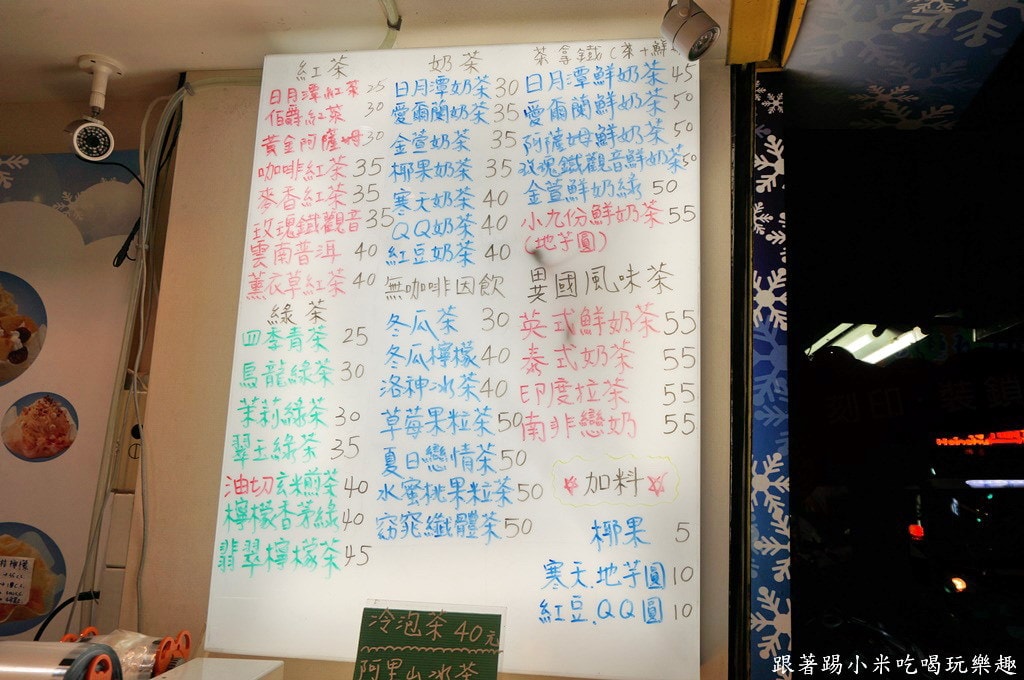 紅茶
日月潭紅茶 25
伯爵紅茶 30
黃金阿薩姆 30
咖啡紅茶 35
麥香紅茶 35
玫瑰鐵觀音 35
雲南普洱 40
薰衣草紅茶 40
綠茶
四季青茶 25
烏龍綠茶 30
茉莉綠茶 30
翠玉綠茶 35
油切玄米煎茶 40
檸檬香茅綠 40
翡翠檸檬茶 45
奶茶
日月潭奶茶 30
愛爾蘭奶茶 35
金萱奶茶 35
椰果奶茶 35
寒天奶茶 40
QQ奶茶 40
紅豆奶茶 40
無咖啡因飲
冬瓜茶 30
冬瓜檸檬 40
洛神冰茶 40
草莓果粒茶 50
夏日戀情茶 50
水蜜桃果粒茶 50
窈窕纖體茶 50
茶拿鐵(茶+鮮
日月潭鮮奶茶 45
愛爾蘭鮮奶茶 50
阿薩姆鮮奶茶 50
玫瑰鐵觀音鮮奶茶 50
金萱鮮奶綠 50
小九份鮮奶茶 55
(地芋圓)
異國風味茶
英式鮮奶茶 55
泰式奶茶 55
印度拉茶 55
南非戀奶 55
加料
椰果 5
寒天.地芋圓 10
紅豆.QQ圓 10
冷泡茶 40元
阿里山冰茶
跟著踢小米吃喝玩樂趣